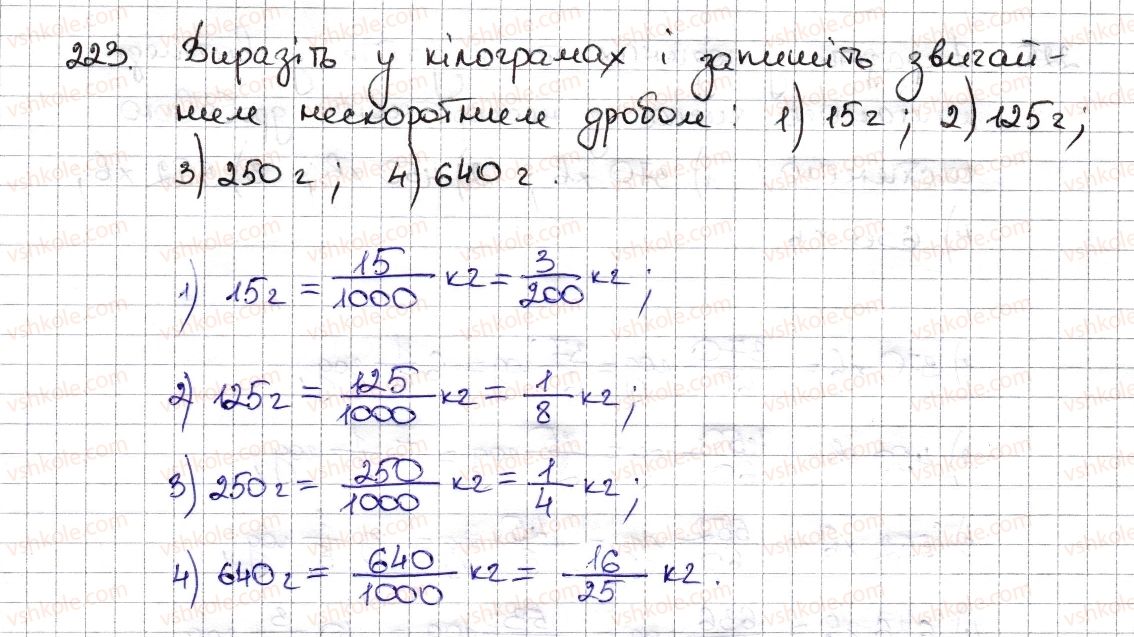 223. Виразіть у кілограмах і запишіть звичай-
ним нескоротним дробом: 1) 15г; 2) 125г;
3) 250г; 4) 640г.
1) 15г = 15/1000 кг = 3/200 кг;
2) 125г = 125/1000 кг = 1/8 кг;
3) 250г = 250/1000 кг = 1/4 кг;
4) 640г = 640/1000 кг = 16/25 кг.